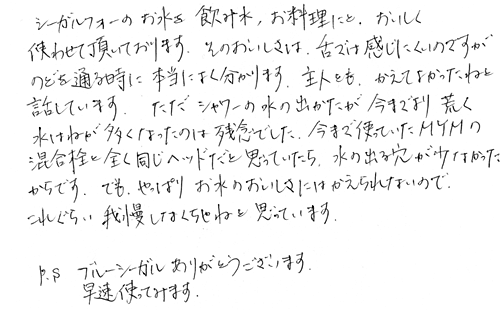 シーガルフォーのお水を 飲み水，お料理にと，おいしく
使わせて頂いております。そのおいしさは、舌では感じにくいのですが
のどを通る時に 本当によく分かります。主人とも，かえてよかったねと
話しています。 ただ シャワーの水の出かたが 今までより 荒く
水はねが 多くなったのは 残念でした。今まで使っていた MYMの
混合栓と全く同じヘッドだと思っていたら，水の出る穴が少なかった
からです。でも，やっぱり お水のおいしさにはかえられないので，
これぐらい 我慢しなくちゃねと 思っています。
P.S ブルーシーガル ありがとうございます。
早速 使ってみます。